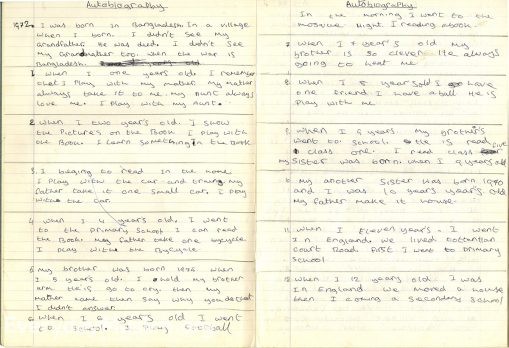 Autobiography
1972. I was born in Bangladesh. In a village
when I born. I didn't See my
Grandfather. He was dead. I didn't See
my Grandmother too. When the war is
Bangladesh.
1. When I one years old. I remember
that I Play with my mother. my mother
always take it to me. my Aunt always
love me. I Play with my Aunt.
2. When I two years old. I show
the Pictures on the Book. I Play with
the Book. I learn Something in the Book.
3. I beging to read in the home.
I Play with the car and train my
father take it one Small car, I Play
with the car.
4. When I 4 years old, I went
to the Primary School I can read
the Book. my father take one bycycle
I Play with the Bycycle.
5. My brother was born 1976 when
I 5 years old. I hold my brother
arm. He is go to cry then my
mother came then Say why you do that
I didn't answer.
6. When I 6 years old I went
to School. I Play football
Autobiography
In the morning I went to the
mosque Night I reading abook.
7. When I 7 years old my
brother is so clever. He always
going to beat me.
8. When I 8 year Sold I have
one friend. I have a ball He is
Play with me.
9. When I 9 years. my brother's
went to School. He is read
class one. I read class five
my Sister was born. when I 9 years old
10. my another Sister has born 1980
and I was 10 years years old
my father make it house.
11. When I Eleven years. I went
In England. We lived Tottenham
Court Road. First I went to Primary
School
12. When I 12 years old. I was
In England. We moved a house
then I coming a Secondary School